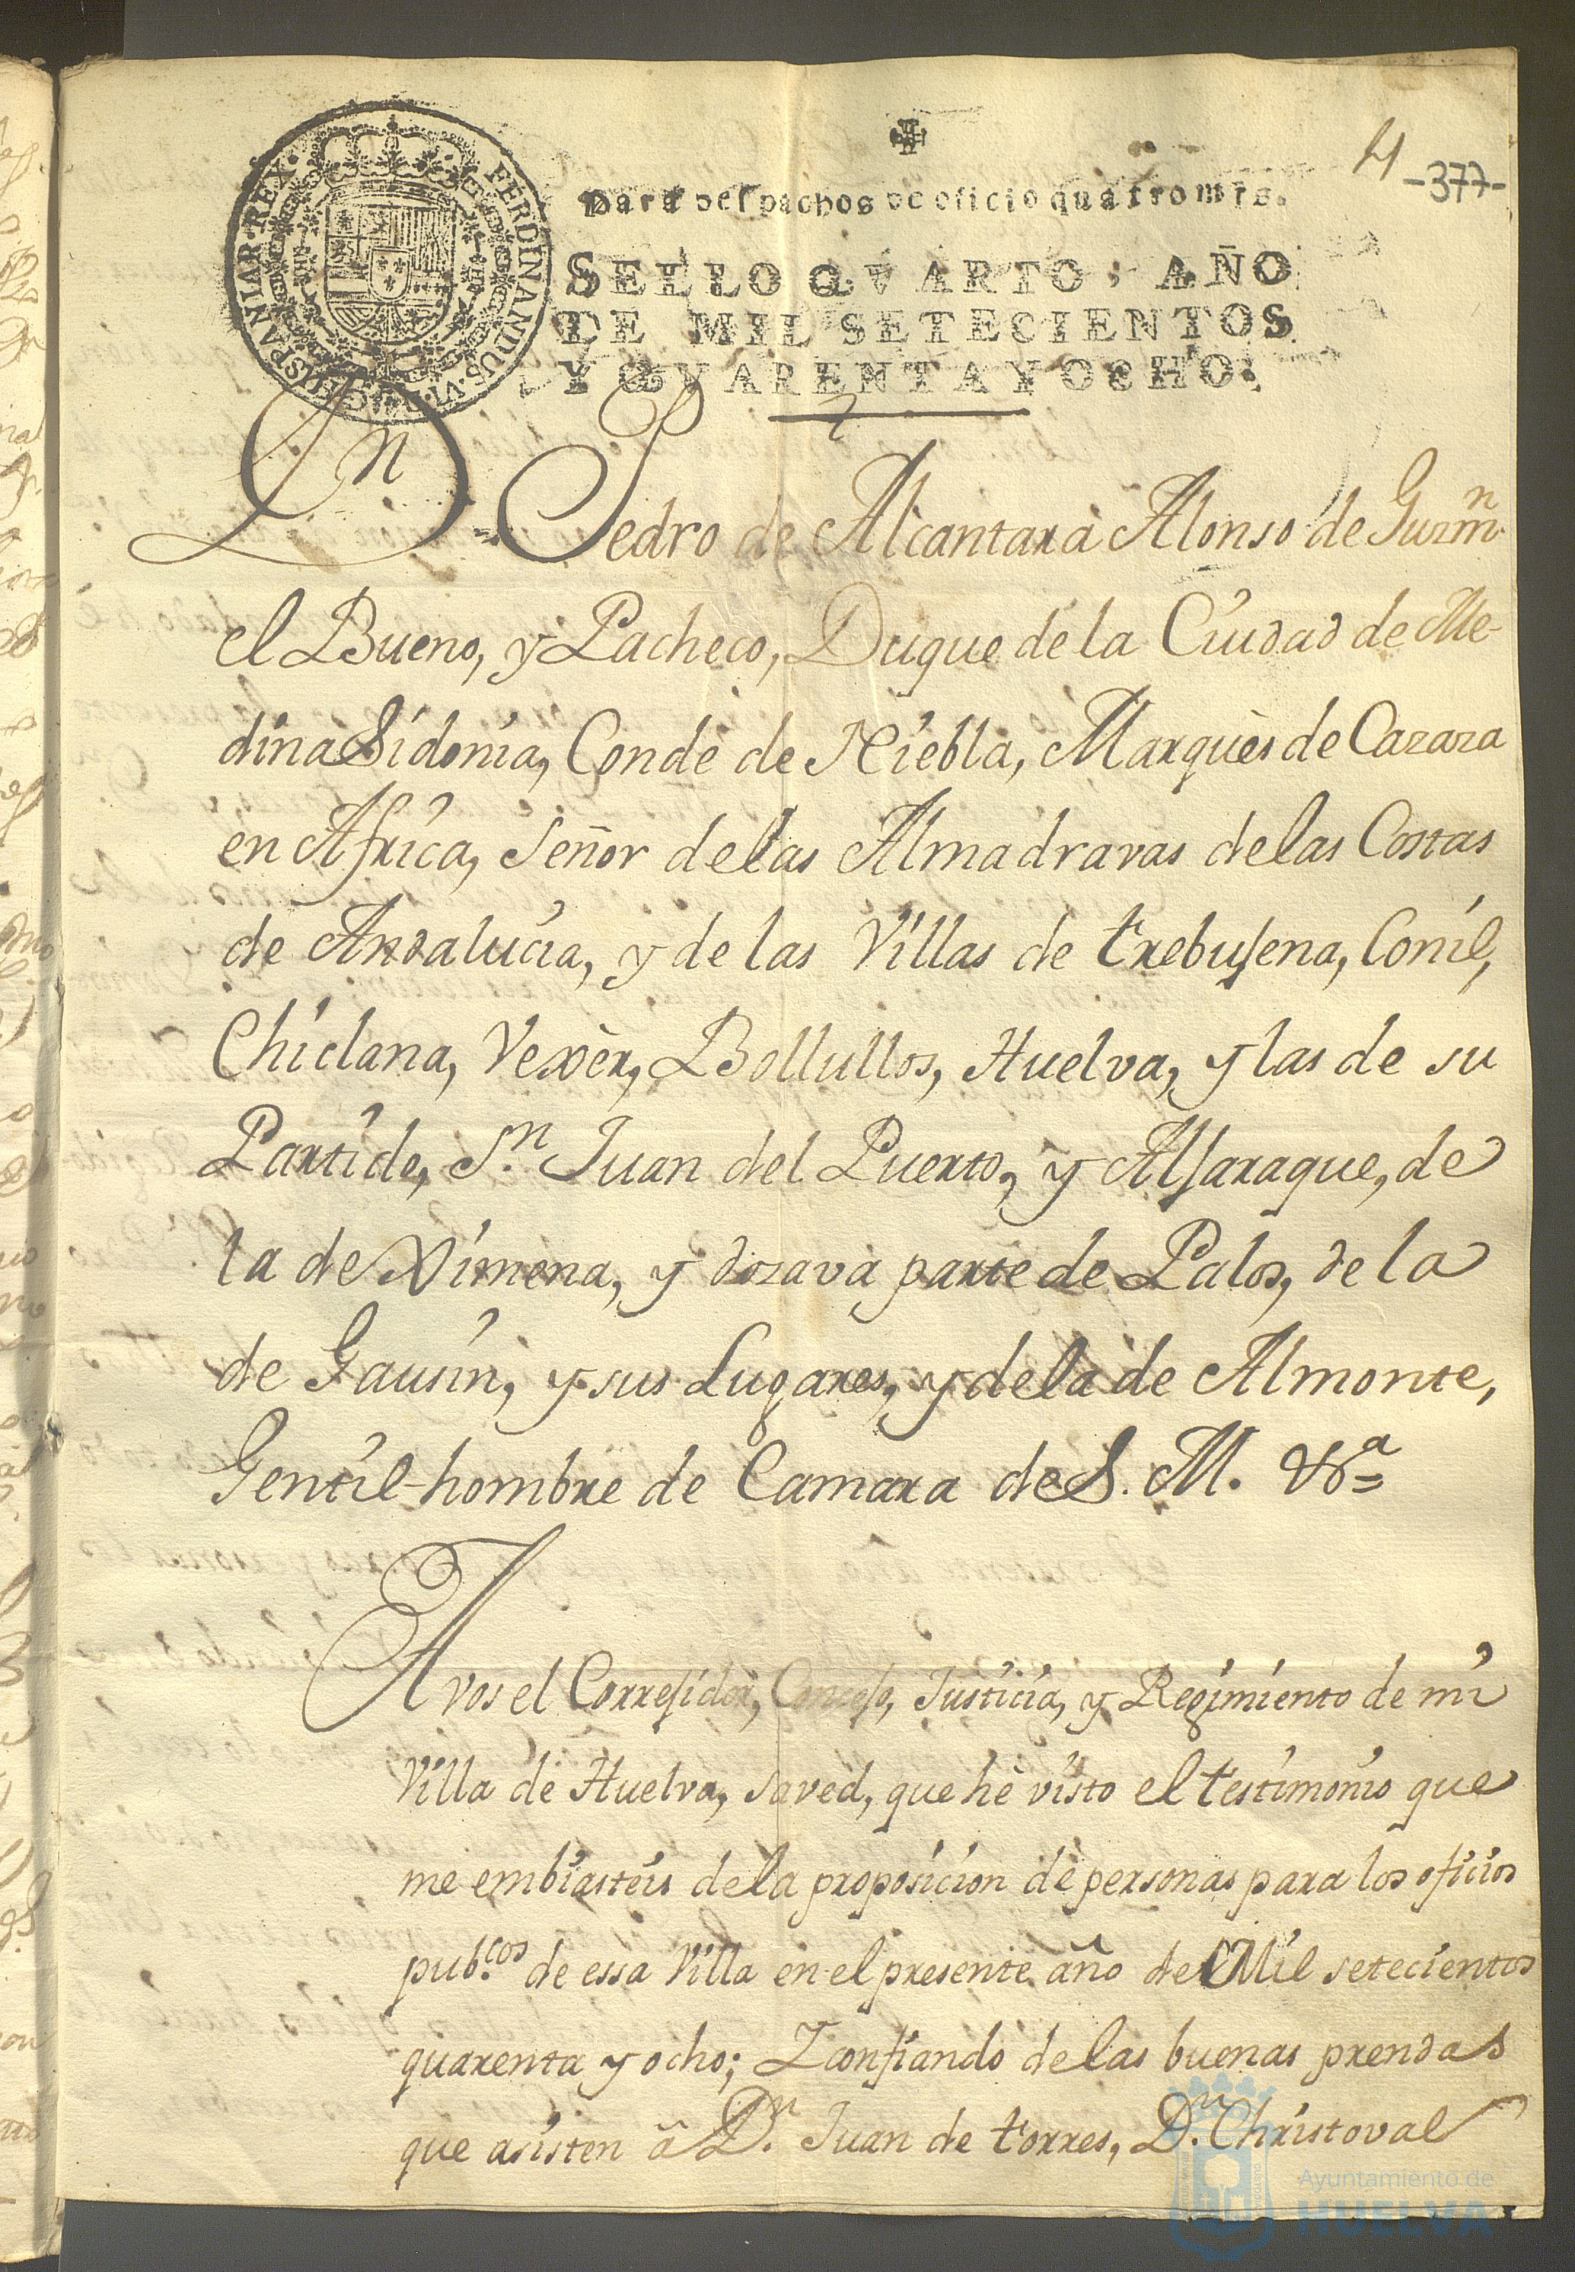 4
-377-
FERDINANDUS·VI·D·G·HISPANIAR·REX·
Para despachos de oficio quatro mrs.
SELLO QVARTO, AÑO
DE MIL SETECIENTOS
Y QVARENTA Y OCHO.
Dn. Pedro de Alcantara Alonso de Guzmn.
el Bueno, y Pacheco, Duque de la Ciudad de Me-
dina Sidonia, Conde de Niebla, Marquès de Cazaza
en Africa, Señor de las Almadravas de las Costas
de Andalucia, y de las Villas de trebujena, Conil,
Chiclana, Vexèr, Bollullos, Huelva, y las de su
Partido, Sn. Juan del Puerto, y Aljaraque, de
la de Ximena, y dozava parte de Palos, de la
de Gausin, y sus Lugares, y de la de Almonte,
Gentil-hombre de Camara de S. M. &a=
A vos el Correjidor, Concejo, Justicia, y Regimiento de mi
Villa de Huelva, saved, que hè visto el testimonio que
me embiasteis de la proposicion de personas para los oficios
pub.cos de essa Villa en el presente año de Mil setecientos
quarenta y ocho; Y confiando de las buenas prendas
que asisten à Dn. Juan de torres, Dn. Christoval
Ayuntamiento de
HUELVA